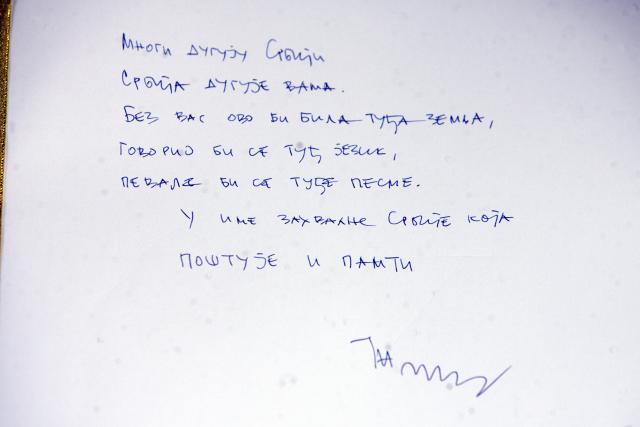 Многи дугују Србији
Србија дугује вама.
Без вас ово би била туђа земља,
говорио би се туђ језик,
певале би се туђе песме.
У име захвалне Србије која
поштује и памти